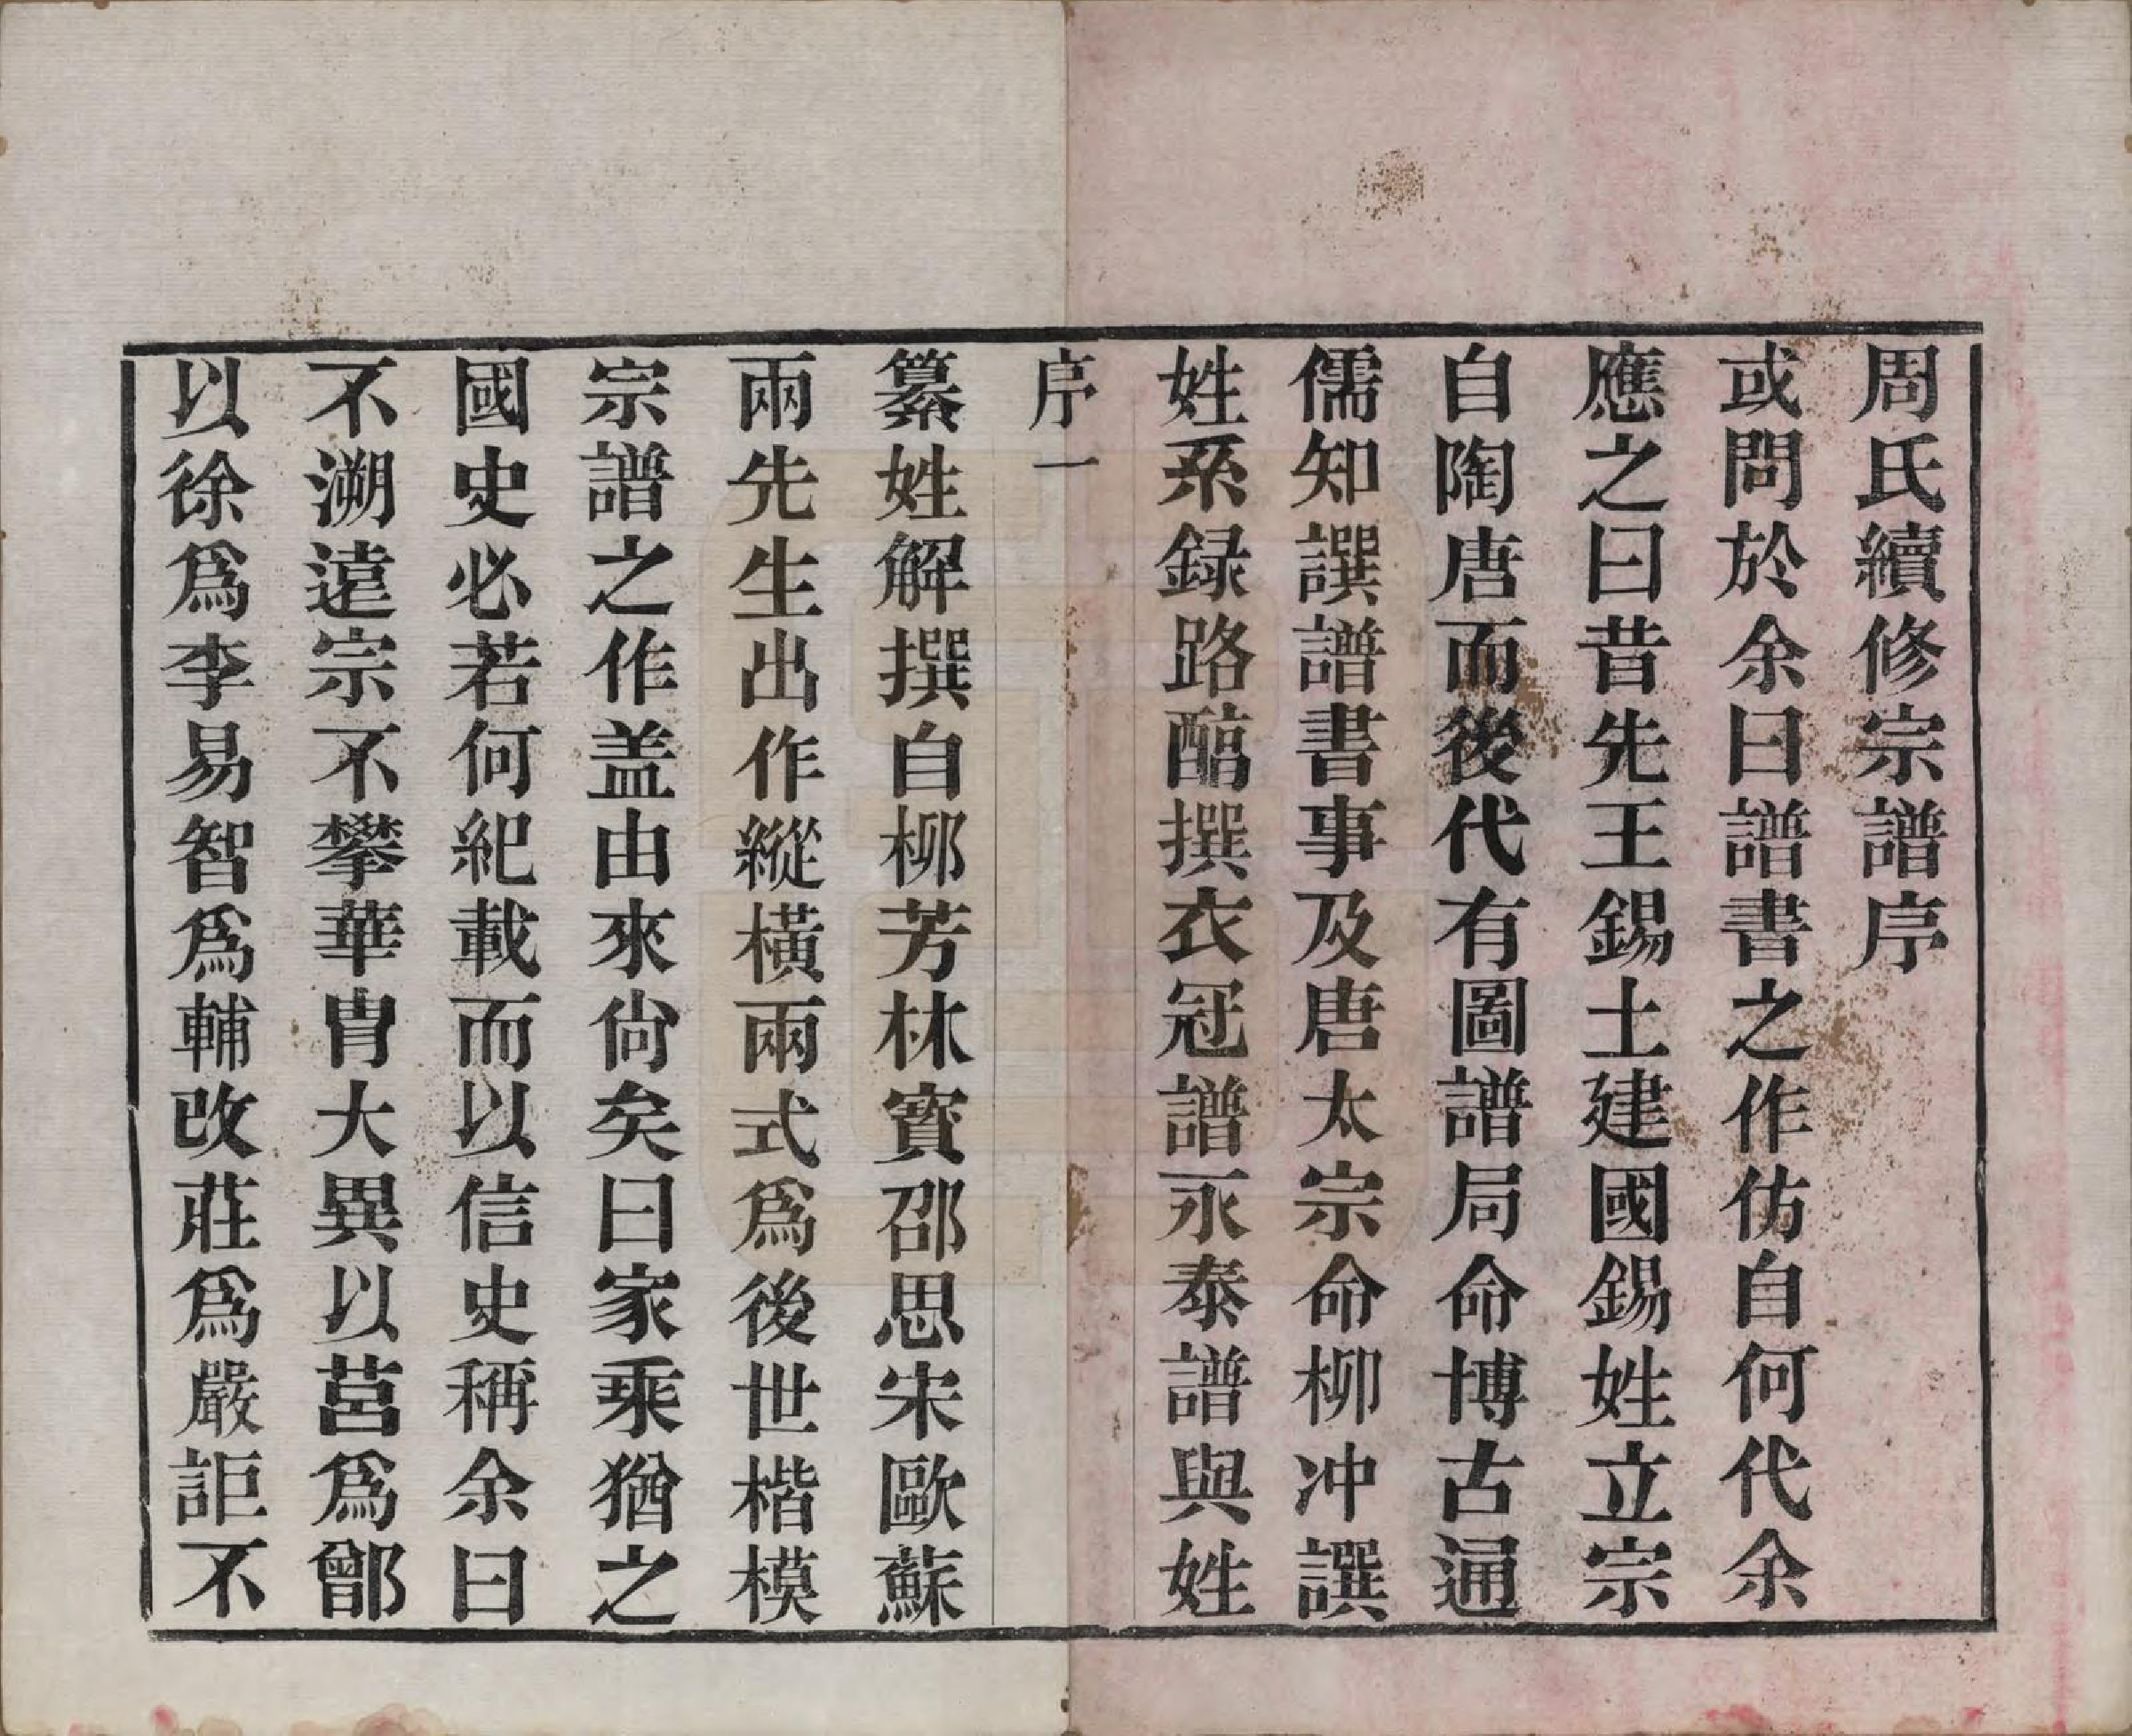 周氏續修宗譜序
或問於余曰譜書之作仿自何代余
應之曰昔先王錫土建國錫姓立宗
自陶唐而後代有圖譜局命博古通
儒知譔譜書事及唐太宗命柳冲譔
姓系録路醕撰衣冠譜永泰譜與姓
序一
纂姓解撰自柳芳林寳邵思宋歐蘇
兩先生出作縱橫兩式爲後世楷模
宗譜之作盖由來尙矣曰家乘猶之
國史必若何紀載而以信史稱余曰
不溯遠宗不攀華胄大異以莒爲鄫
以徐爲李易智爲輔改莊爲嚴詎不